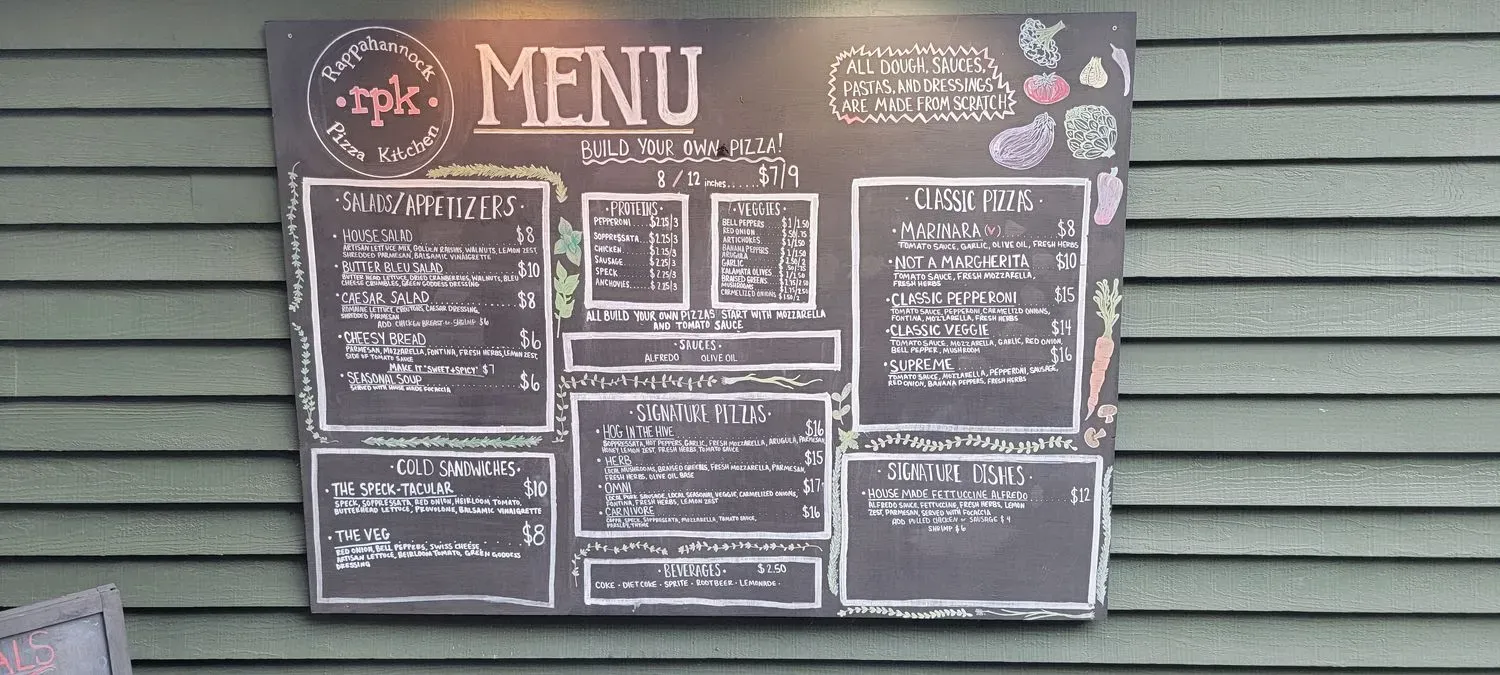 Rappahannock
rpk
Pizza Kitchen
MENU
ALL DOUGH, SAUCES,
PASTAS, AND DRESSINGS
ARE MADE FROM SCRATCH
BUILD YOUR OWN PIZZA!
8 / 12 inches..... $7/9
SALADS/APPETIZERS
HOUSE SALAD $8
ARTISAN LETTUCE MIX, GOLDEN RAISINS, WALNUTS, LEMON ZEST,
SHREDDED PARMESAN, BALSAMIC VINAIGRETTE
BUTTER BLEU SALAD $10
BUTTER HEAD LETTUCE, DRIED CRANBERRIES, WALNUTS, BLEU
CHEESE CRUMBLES, GREEN GODDESS DRESSING
CAESAR SALAD $8
ROMAINE LETTUCE, CROUTONS, CAESAR DRESSING,
SHREDDED PARMESAN
ADD CHICKEN BREAST or SHRIMP $6
CHEESY BREAD $6
PARMESAN, MOZZARELLA, FONTINA, FRESH HERBS, LEMON ZEST,
SIDE OF TOMATO SAUCE
MAKE IT "SWEET+SPICY" $7
SEASONAL SOUP $6
SERVED WITH HOUSE MADE FOCACCIA
·PROTEINS·
PEPPERONI ..... $2.25/3
SOPPRESSATA ... $2.25/3
CHICKEN ..... $2.25/3
SAUSAGE ..... $2.25/3
SPECK ..... $2.25/3
ANCHOVIES ..... $2.25/3
·VEGGIES·
BELL PEPPERS $1/1.50
RED ONION $.50/.75
ARTICHOKES $1/1.50
BANANA PEPPERS $1/1.50
ARUGULA
GARLIC
KALAMATA OLIVES
BRAISED GREENS
MUSHROOMS
CARMELIZED ONIONS $1.50/2
ALL BUILD YOUR OWN PIZZAS START WITH MOZZARELLA
AND TOMATO SAUCE
·SAUCES·
ALFREDO OLIVE OIL
CLASSIC PIZZAS
MARINARA (V) $8
TOMATO SAUCE, GARLIC, OLIVE OIL, FRESH HERBS
NOT A MARGHERITA $10
TOMATO SAUCE, FRESH MOZZARELLA,
FRESH HERBS
CLASSIC PEPPERONI $15
TOMATO SAUCE, PEPPERONI, CARMELIZED ONIONS,
FONTINA, MOZZARELLA, FRESH HERBS
CLASSIC VEGGIE $14
TOMATO SAUCE, MOZZARELLA, GARLIC, RED ONION,
BELL PEPPER, MUSHROOM
SUPREME $16
TOMATO SAUCE, MOZZARELLA, PEPPERONI, SAUSAGE,
RED ONION, BANANA PEPPERS, FRESH HERBS
·SIGNATURE PIZZAS·
HOG IN THE HIVE $16
SOPPRESSATA, HOT PEPPERS, GARLIC, FRESH MOZZARELLA, ARUGULA, PARMESAN
HONEY, LEMON ZEST, FRESH HERBS, TOMATO SAUCE
HERB $15
LOCAL MUSHROOMS, BRAISED GREENS, FRESH MOZZARELLA, PARMESAN,
FRESH HERBS, OLIVE OIL BASE
OMNI $17
LOCAL PORK SAUSAGE, LOCAL SEASONAL VEGGIE, CARMELIZED ONIONS,
FONTINA, FRESH HERBS, LEMON ZEST
CARNIVORE $16
COPPA, SPECK, SOPPRESSATA, MOZZARELLA, TOMATO SAUCE,
PARSLEY, THYME
COLD SANDWICHES·
THE SPECK-TACULAR $10
SPECK, SOPPRESSATA, RED ONION, HEIRLOOM TOMATO,
BUTTERHEAD LETTUCE, PROVOLONE, BALSAMIC VINAIGRETTE
THE VEG $8
RED ONION, BELL PEPPERS, SWISS CHEESE,
ARTISAN LETTUCE, HEIRLOOM TOMATO, GREEN GODDESS
DRESSING
·BEVERAGES· $2.50
COKE · DIET COKE · SPRITE · ROOT BEER · LEMONADE ·
SIGNATURE DISHES·
HOUSE MADE FETTUCCINE ALFREDO $12
ALFREDO SAUCE, FETTUCCINE, FRESH HERBS, LEMON
ZEST, PARMESAN, SERVED WITH FOCACCIA
ADD PULLED CHICKEN or SAUSAGE $4
SHRIMP $6
ALS